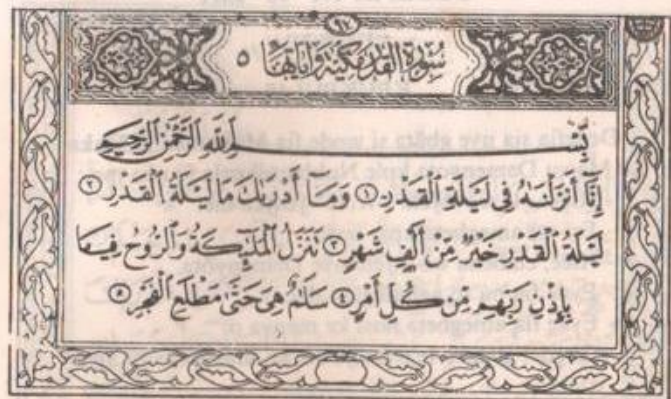 ٩٧
سُورَةُ القَدْرِ مَكِّيَّة وَآيَاتُهَا ٥
بِسْمِ اللَّهِ الرَّحْمَٰنِ الرَّحِيمِ
إِنَّا أَنزَلْنَـٰهُ فِى لَيْلَةِ ٱلْقَدْرِ ① وَمَآ أَدْرَىٰكَ مَا لَيْلَةُ ٱلْقَدْرِ ②
لَيْلَةُ ٱلْقَدْرِ خَيْرٌ مِّنْ أَلْفِ شَهْرٍ ③ تَنَزَّلُ ٱلْمَلَـٰٓئِكَةُ وَٱلرُّوحُ فِيهَا
بِإِذْنِ رَبِّهِم مِّن كُلِّ أَمْرٍ ④ سَلَـٰمٌ هِىَ حَتَّىٰ مَطْلَعِ ٱلْفَجْرِ ⑤